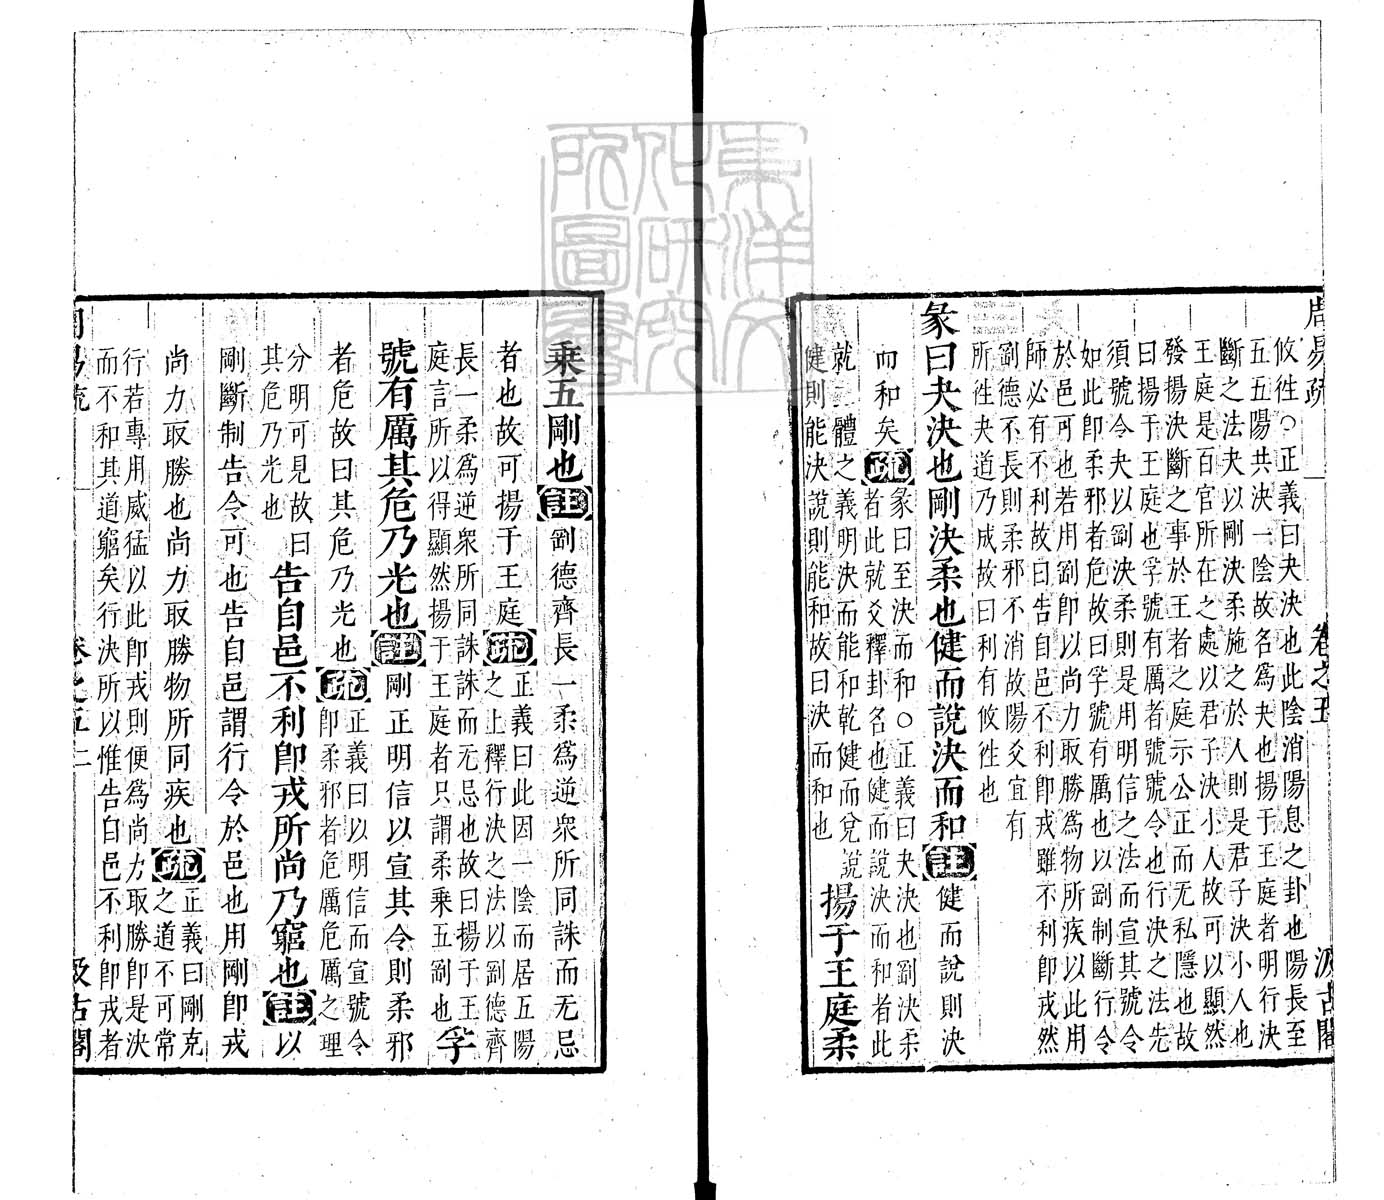 周易疏 卷之五 汲古閣
攸徃○正義曰夬決也此陰消陽息之卦也陽長至
五五陽共決一陰故名爲夬也揚于王庭者明行決
斷之法夬以剛決柔施之於人則是君子決小人也
王庭是百官所在之處以君子決小人故可以顯然
發揚決斷之事於王者之庭示公正而无私隱也故
曰揚于王庭也孚號有厲者號號令也行決之法先
須號令夬以剛決柔則是用明信之法而宣其號令
如此即柔邪者危故曰孚號有厲也以剛制斷行令
於邑可也若用剛即以尚力取勝爲物所疾以此用
師必有不利故曰告自邑不利即戎雖不利即戎然
剛德不長則柔邪不消故陽爻宜有
所徃夬道乃成故曰利有攸徃也
彖曰夬決也剛決柔也健而說決而和註健而說則決
而和矣疏彖曰至決而和○正義曰夬決也剛決柔
者此就爻釋卦名也健而說決而和者此
就二體之義明決而能和乾健而兌說
健則能決說則能和故曰決而和也
揚于王庭柔
乘五剛也註劉德齊長一柔爲逆衆所同誅而无忌
者也故可揚于王庭疏正義曰此因一陰而居五陽
之上釋行決之法以剛德齊
長一柔爲逆衆所同誅誅而无忌也故曰揚于王
庭言所以得顯然揚于王庭者只謂柔乘五剛也
孚
號有厲其危乃光也註剛正明信以宣其令則柔邪
者危故曰其危乃光也疏正義曰以明信而宣號令
即柔邪者危厲危厲之理
分明可見故曰
其危乃光也
告自邑不利即戎所尚乃窮也註以
剛斷制告令可也告自邑謂行令於邑也用剛即戎
尚力取勝也尚力取勝物所同疾也疏正義曰剛克
之道不可常
行若專用威猛以此即戎則便爲尚力取勝即是決
而不和其道窮矣行決所以惟告自邑不利即戎者
周易疏 卷之五 二 汲古閣
東洋文化研究所圖書